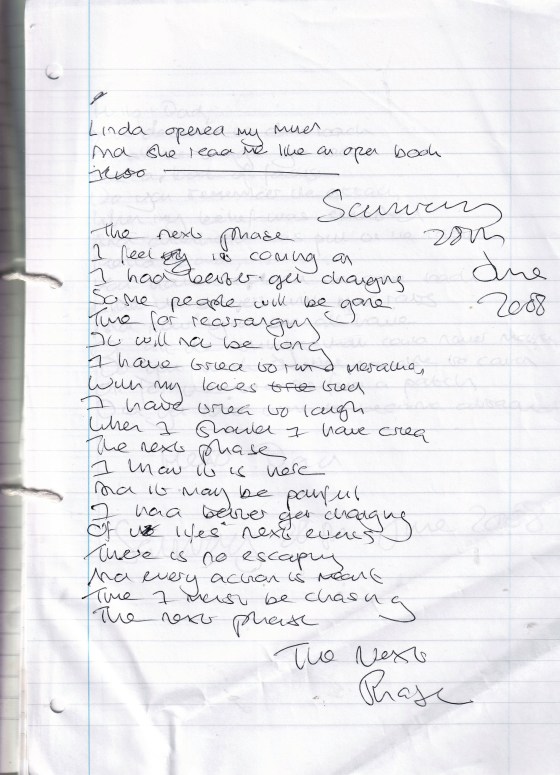 Linda opened my mind
And she read me like an open book
Saturday
28th
June
2008
The next phase
I feel is coming on
I had better get changing
Some people will be gone
Time for rearranging
It will not be long
I have tried to run
With my laces tied
I have tried to laugh
When I should I have cried
The next phase
I know it is here
And it may be painful
I had better get changing
Of lifes next event
There is no escaping
And every action is meant
Time I must be chasing
The next phase
The Next
Phase